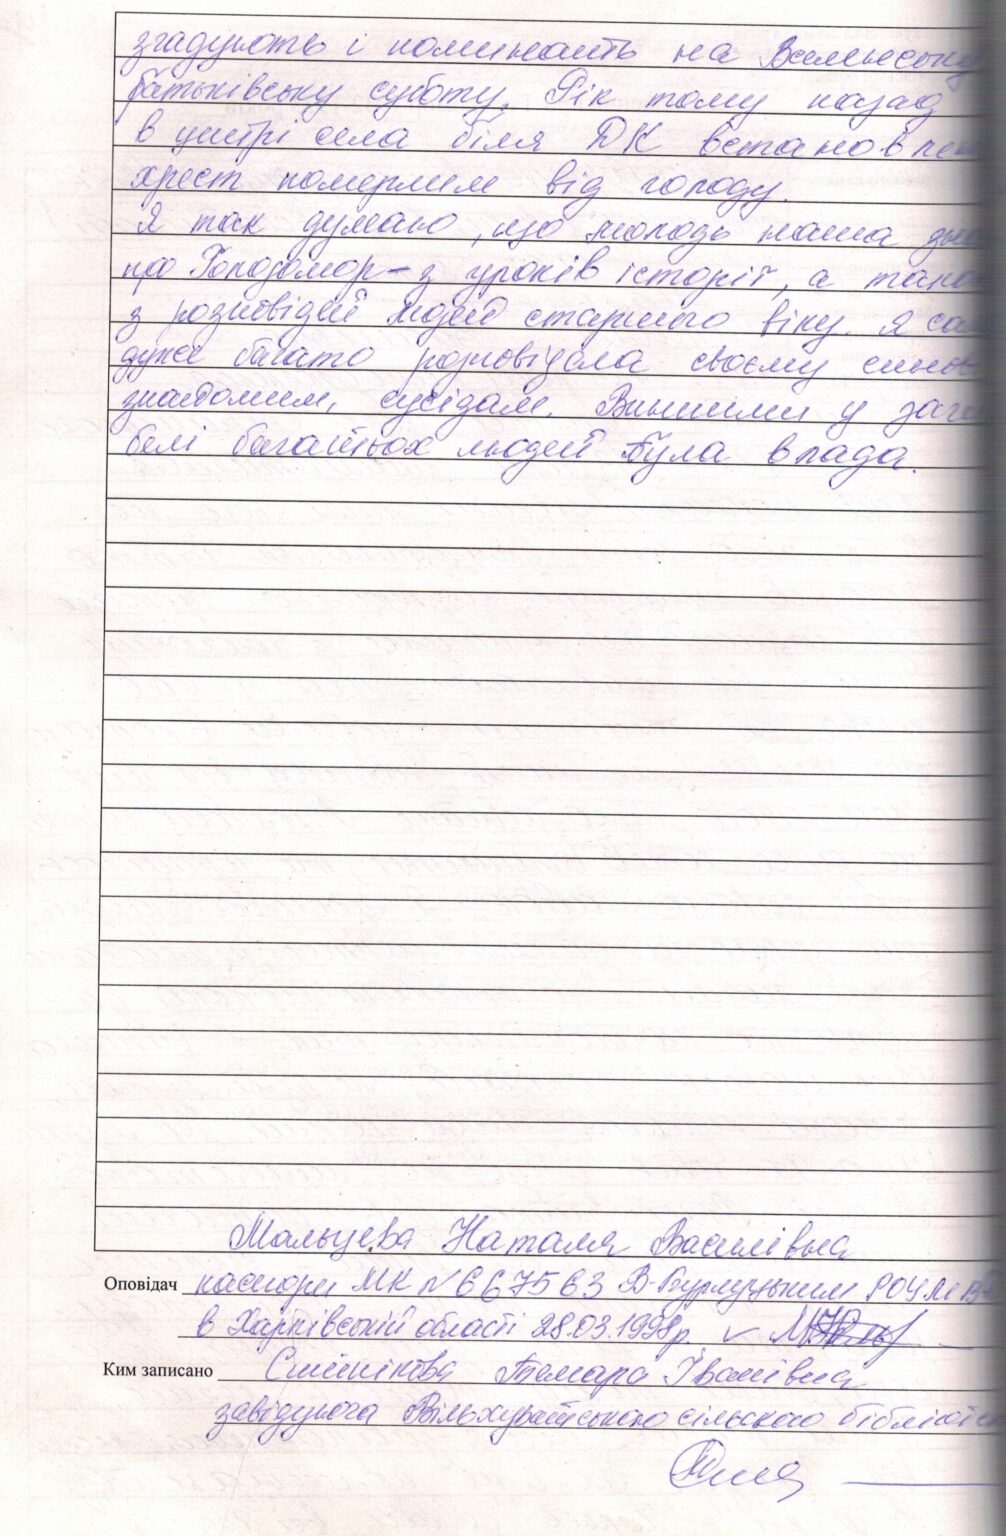 згадують і поминають на Вселенську
батьківську суботу. Рік тому назад
в центрі села біля ДК встановлен
хрест померлим від голоду.
Я так думаю, що молодь наша зна
про Голодомор - з уроків історії, а також
з розповідей людей старшого віку. Я сам
дуже багато розповідала своєму синов
знайомим, сусідам. Винними у заги
белі багатьох людей була влада.
Мальцева Наталя Василівна
Оповідач паспорт МК № 667563 В-Бурлуцьким РОУМВ
в Харківській області 28.03.1998р.
Ким записано Тамара Іванівна
завідуюча Вільхуватською сільською бібліоте